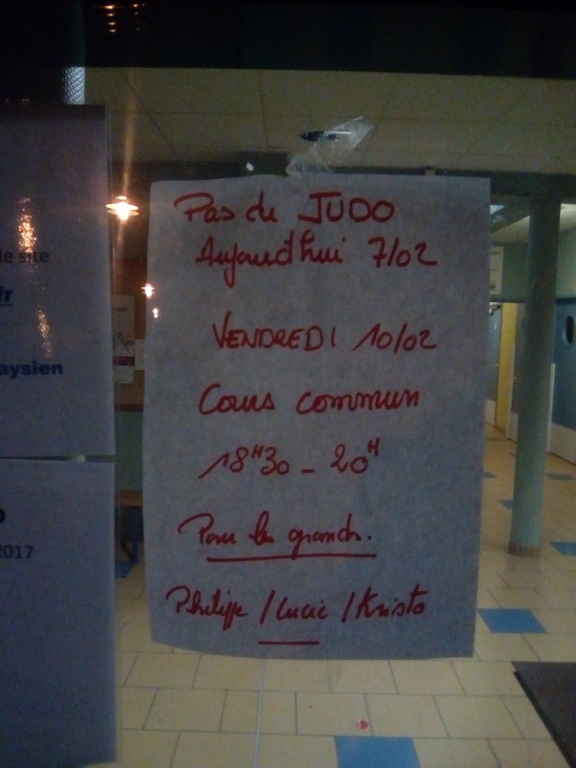 Pas de JUDO
Aujourd'hui 7/02
VENDREDI 10/02
Cours commun
18H30 - 20H
Pour les grands.
Philippe / Lucie / Kristo
le site
fr
aysien
2017